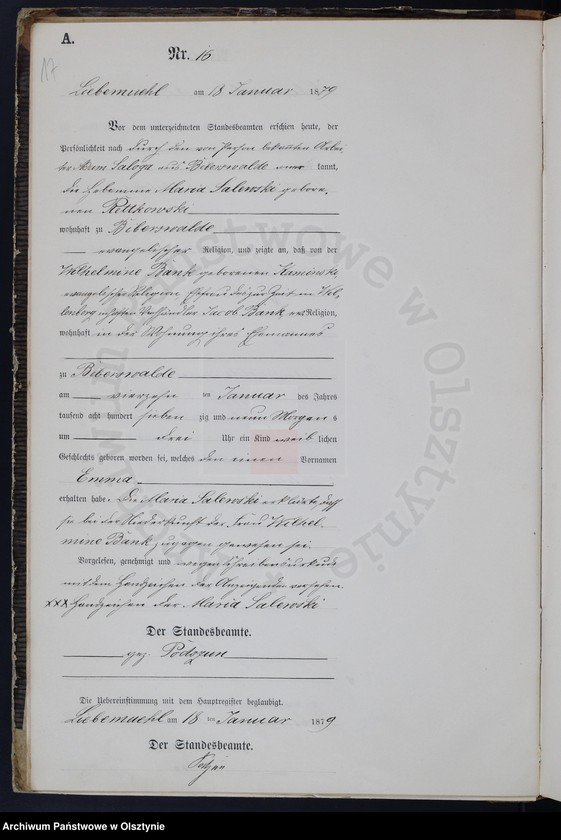 A.
17
Nr. 16
Liebemuehl am 18 Januar 1879
Vor dem unterzeichneten Standesbeamten erschien heute, der
Persönlichkeit nach durch den von Person bekannten
Saloga aus Biberswalde kannt,
die Hebamme Maria Salewski gebore-
nen Rettkowski
wohnhaft zu Biberswalde
evangelischer Religion, und zeigte an, daß von der
Wilhelmine Bank geborenen Kaminski
evangelischer Religion, Ehefrau des zur Zeit in
Jacob Bank Religion,
wohnhaft in der Wohnung ihres Ehemannes
zu Biberswalde
am vierzehn ten Januar des Jahres
tausend acht hundert sieben zig und neun Morgens
um drei Uhr ein Kind weib lichen
Geschlechts geboren worden sei, welches den einen Vornamen
Emma
erhalten habe. Die Maria Salewski erklärte, daß
sie bei der Niederkunft der Frau Wilhel-
mine Bank zugegen gewesen sei.
Vorgelesen, genehmigt und wegen Schreibensunkunde
mit dem Handzeichen der Anzeigenden versehen.
XXX Handzeichen der Maria Salewski
Der Standesbeamte.
gez. Podgun
Die Uebereinstimmung mit dem Hauptregister beglaubigt.
Liebemuehl am 18 ten Januar 1879
Der Standesbeamte.
Archiwum Państwowe w Olsztynie
Archiwum Państwowe w Olsztynie